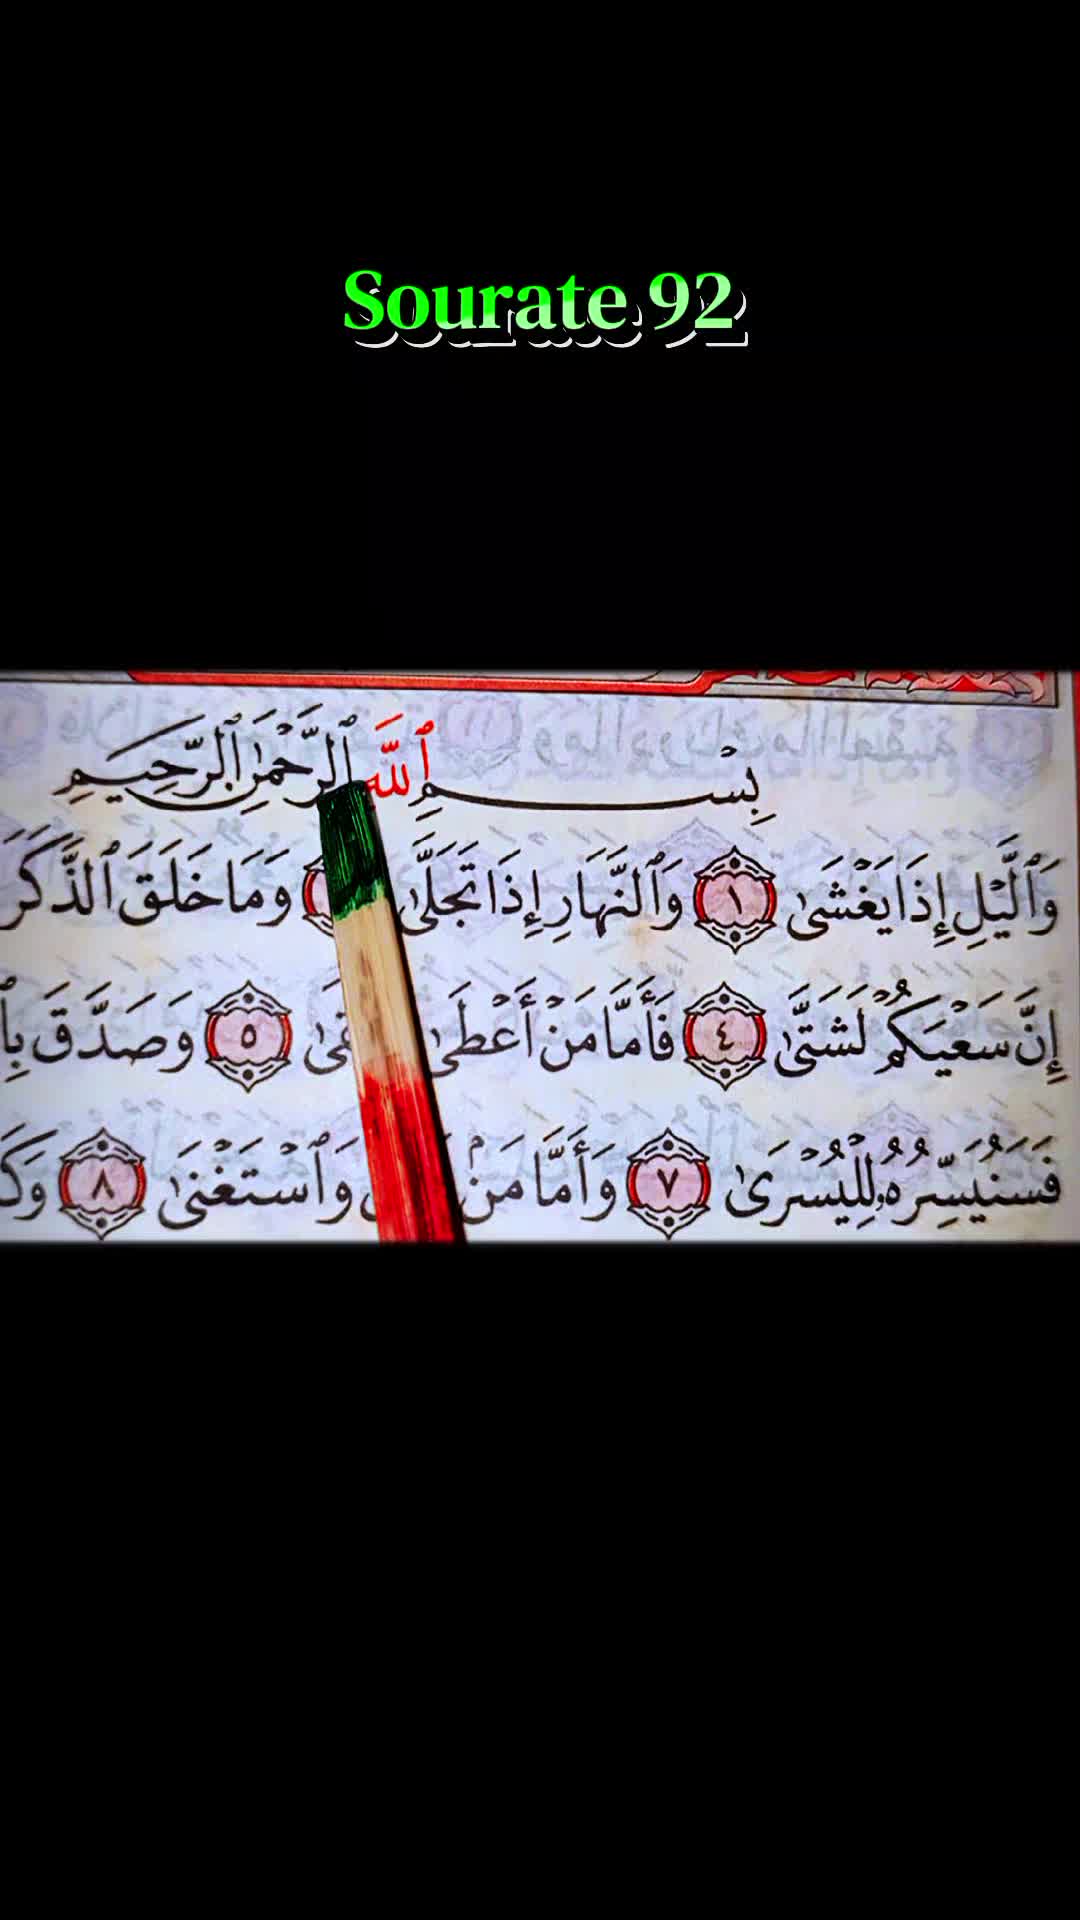 Sourate 92
بِسْمِ ٱللَّهِ ٱلرَّحْمَٰنِ ٱلرَّحِيمِ
وَٱلَّيْلِ إِذَا يَغْشَىٰ ١ وَٱلنَّهَارِ إِذَا تَجَلَّىٰ وَمَا خَلَقَ ٱلذَّكَرَ
إِنَّ سَعْيَكُمْ لَشَتَّىٰ ٤ فَأَمَّا مَنْ أَعْطَىٰ ٥ وَصَدَّقَ
فَسَنُيَسِّرُهُۥ لِلْيُسْرَىٰ ٧ وَأَمَّا مَنۢ وَٱسْتَغْنَىٰ ٨